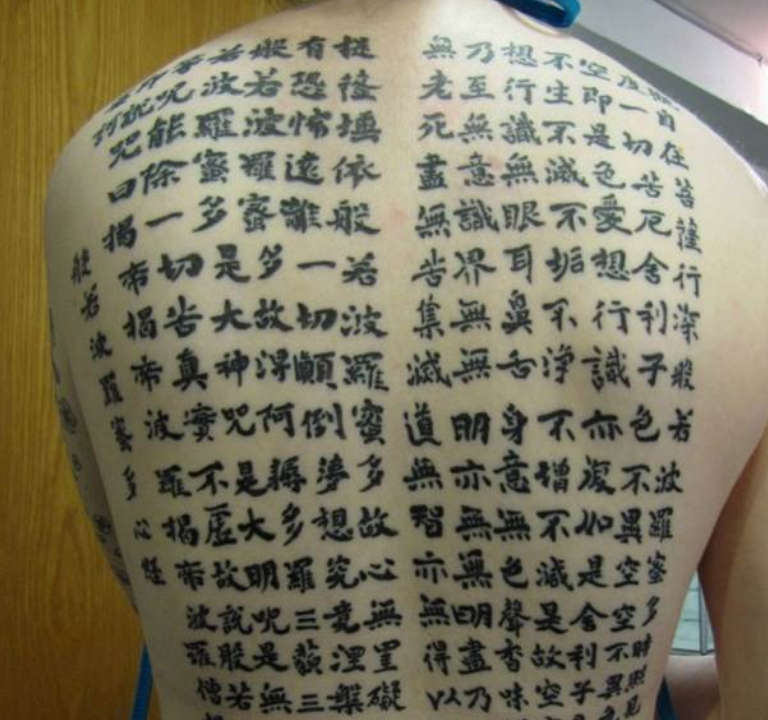 自在菩薩行深般若波羅蜜多時照見
度一切苦厄舍利子色不異空空不異
空即是色受想行識亦復如是舍利子
不生不滅不垢不淨不增不減是故空
想行識無眼耳鼻舌身意無色聲香味
乃至無意識界無無明亦無無明盡乃
無老死盡無苦集滅道無智亦無得以
提薩埵依般若波羅蜜多故心無罣礙
有恐怖遠離一切顛倒夢想究竟涅槃
般若波羅蜜多故得阿耨多羅三藐三
若波羅蜜多是大神咒是大明咒是無
等咒能除一切苦真實不虛故說般若
說咒曰揭帝揭帝波羅揭帝波羅僧
般若波羅蜜多心經